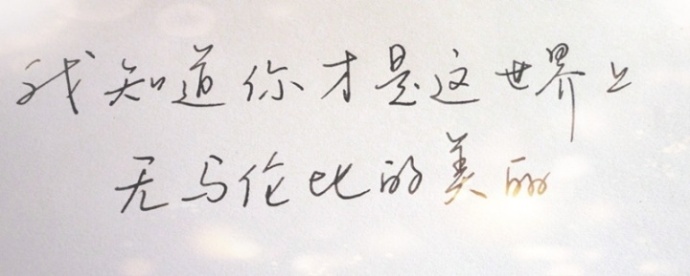 我知道你才是这世界上
无马伦比的美丽